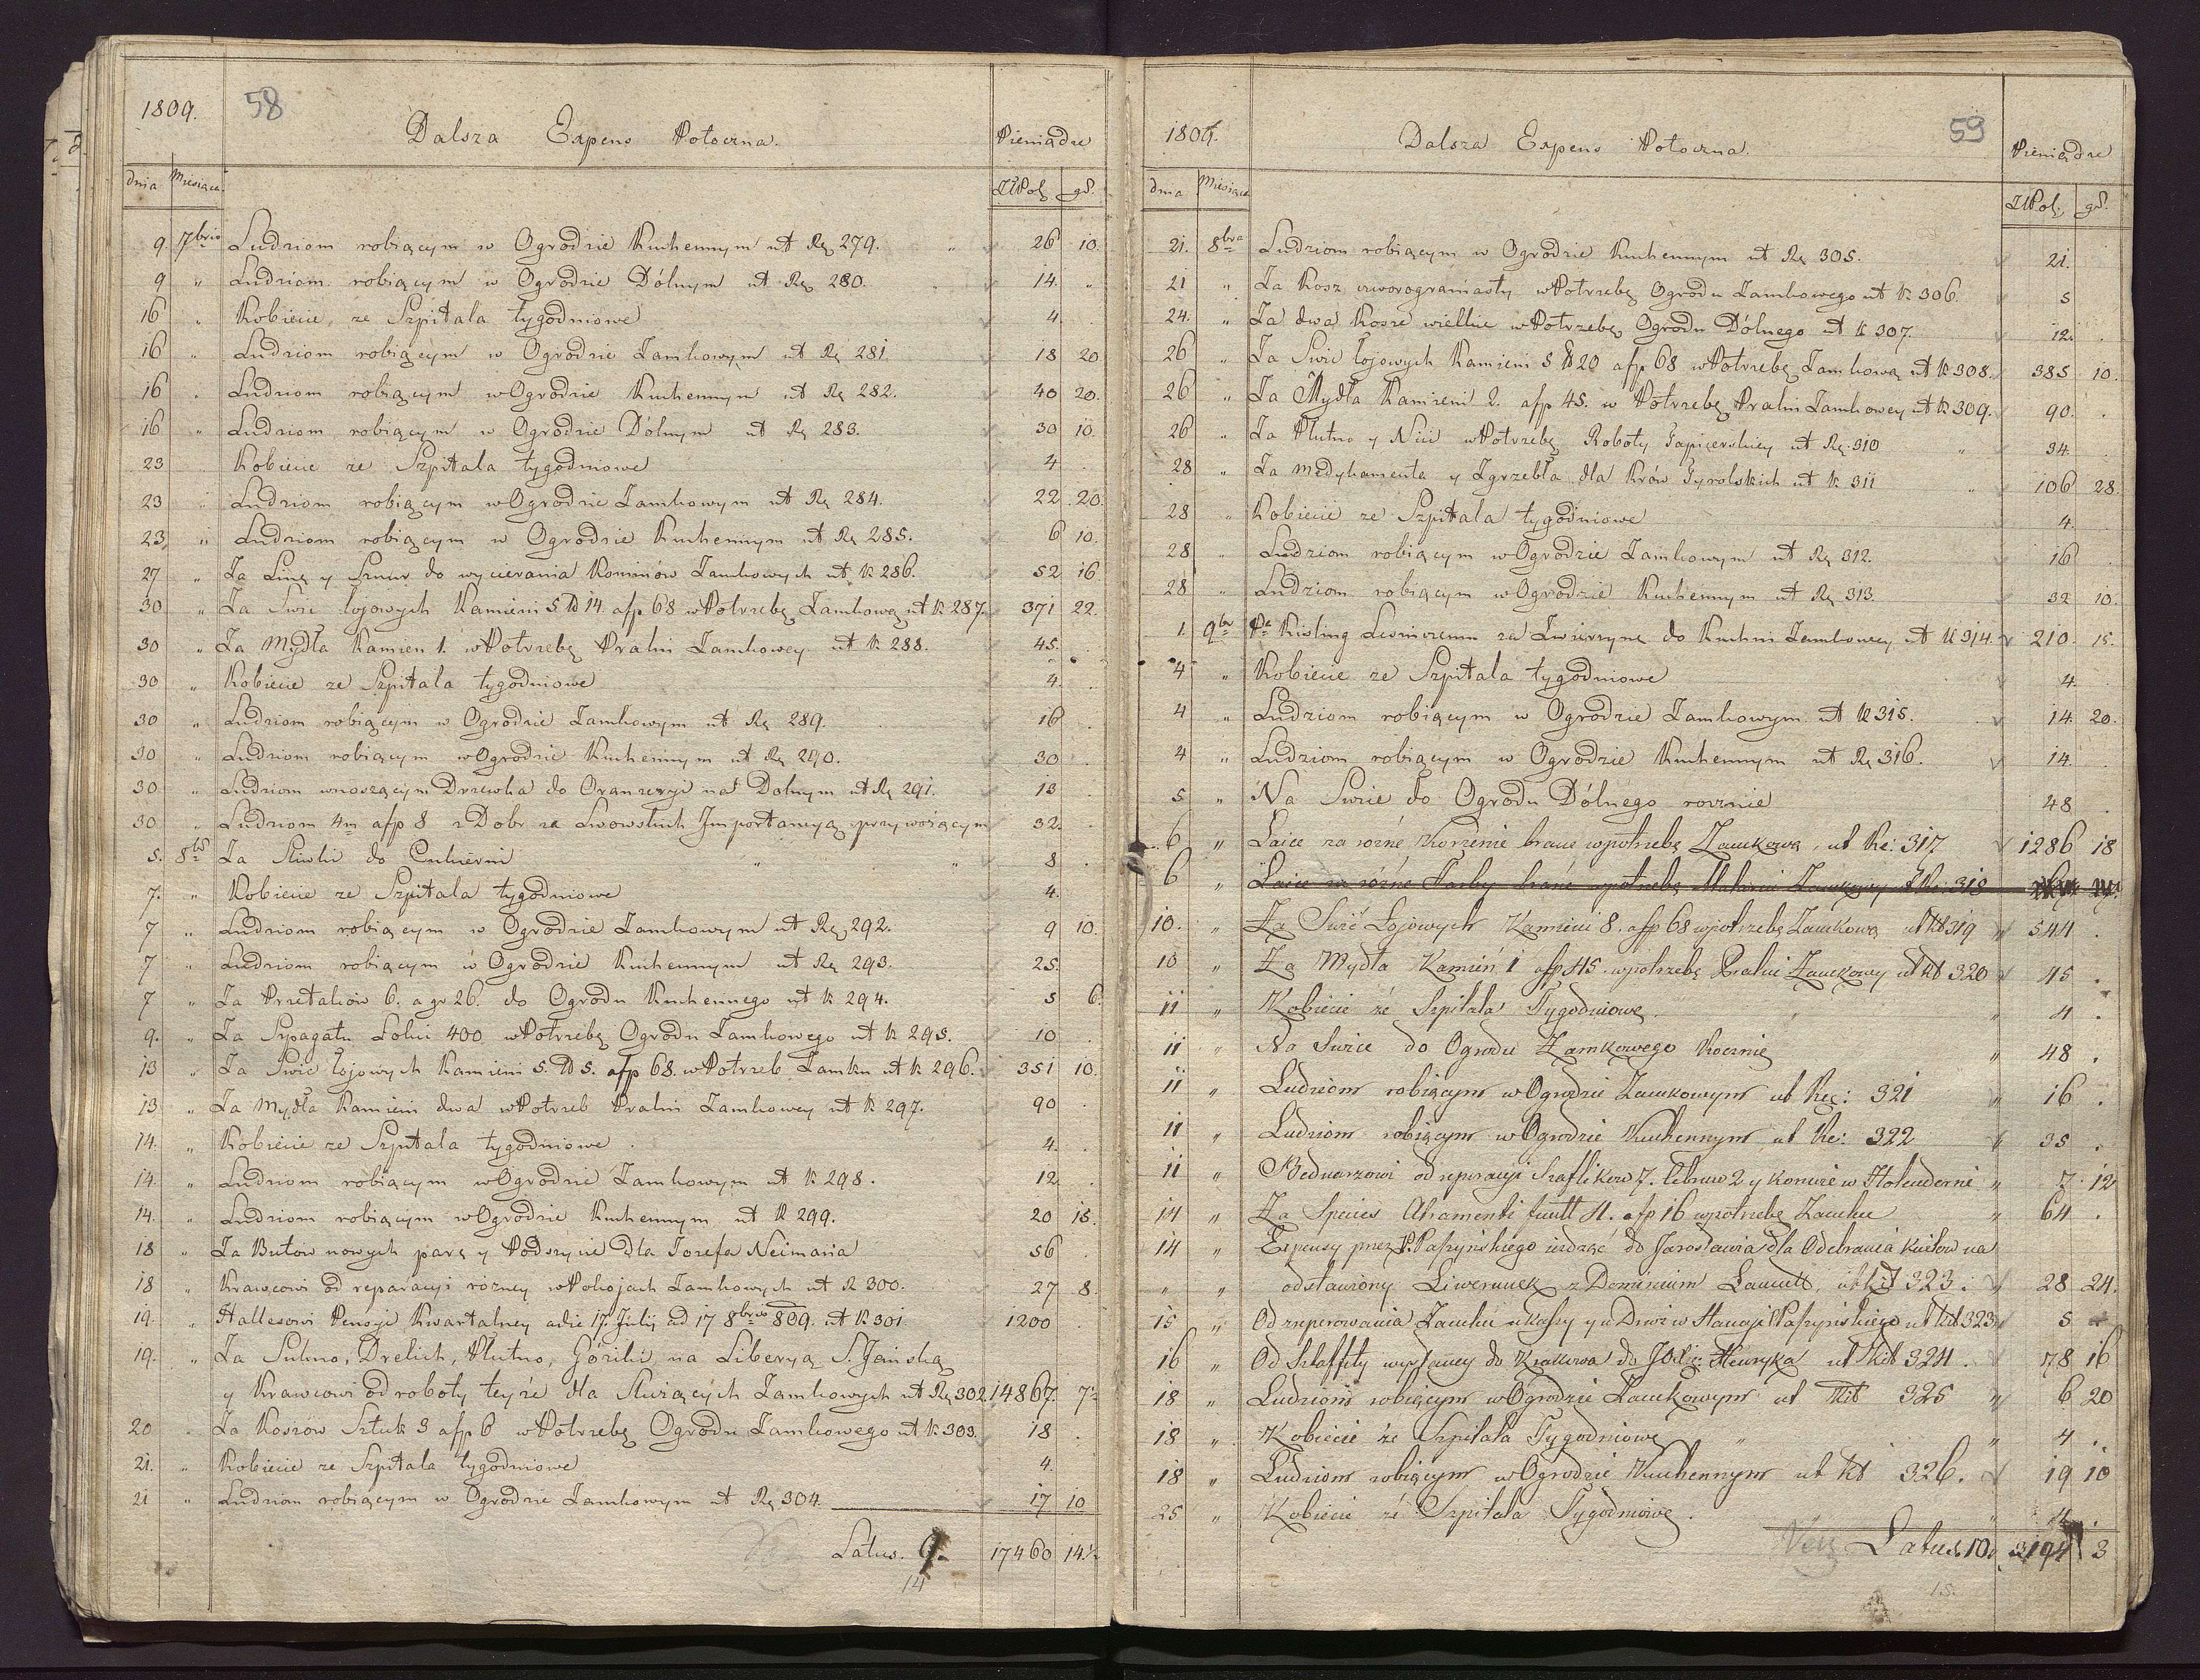 1809.
58
Dalsza Expens Potoczna.
Pieniądze
dnia Miesiąca
ZłPol. gr.
9. 7bris Ludziom robiącym w Ogrodzie Kuchennym ut Rę 279. " 26 10.
9 " Ludziom robiącym w Ogrodzie Dólnym ut Rę 280. 14. "
16 " Kobiecie ze Szpitala tygodniowe 4.
16 " Ludziom robiącym w Ogrodzie Zamkowym ut Rę 281. 18 20
16 " Ludziom robiącym w Ogrodzie Kuchennym ut Rę 282. 40 20.
16 " Ludziom robiącym w Ogrodzie Dólnym ut Rę 283. 30 10.
23 Kobiecie ze Szpitala tygodniowe 4
23 " Ludziom robiącym w Ogrodzie Zamkowym ut Rę 284. 22 20.
23 " Ludziom robiącym w Ogrodzie Kuchennym ut Rę 285. 6 10.
27 " Za Linę y Sznur do wycierania Kominów Zamkowych ut K 286. 52 16
30 " Za Swie łojowych Kamieni 5 ℔ 14. afp 68 w Potrzebę Zamkową ut K 287. 371 22.
30 " Za Mydła Kamien 1. w Potrzebę Pralni Zamkowey ut K 288. 45.
30 " Kobiecie ze Szpitala tygodniowe 4.
30 " Ludziom robiącym w Ogrodzie Zamkowym ut Rę 289. 16
30 " Ludziom robiącym w Ogrodzie Kuchennym ut Rę 290. 30
30 " Ludziom wnoszącym Drzewka do Oranzeryi na Dolnym ut Rę 291. 13
30 " Ludziom 4m afp 8 z Dobr za Lwowskich Importancyą przywożącym 32.
5. 8br Za Sliwki do Cukierni " " 8
7. " Kobiecie ze Szpitala tygodniowe 4.
7 " Ludziom robiącym w Ogrodzie Zamkowym ut Rę 292. 9 10.
7 " Ludziom robiącym w Ogrodzie Kuchennym ut Rę 293. 25.
7 " Za Przetaków 6. a gr 26. do Ogrodu Kuchennego ut K 294. 5 6.
9. " Za Szpagatu Łokci 400 w Potrzebę Ogrodu Zamkowego ut K 295. 10
13 " Za Swie łojowych Kamieni 5. ℔ 5. afp 68. w Potrzeb Zamku ut K 296. 351 10.
13 " Za Mydła Kamieni dwa w Potrzeb Pralni Zamkowey ut K 297. 90
14. " Kobiecie ze Szpitala tygodniowe. 4.
14. " Ludziom robiącym w Ogrodzie Zamkowym ut K 298. 12.
14. " Ludziom robiącym w Ogrodzie Kuchennym ut K 299. 20 15.
18 " Za Butow nowych parę y Podszycie dla Jozefa Neimana 56
18 " Krawcowi od reparacyi rózney w Pokojach Zamkowych ut K 300. 27 8.
19. " Hallesowi Pensyi Kwartalney adie 17 Julij ad 17 8bris 809. ut K 301 1200
19. " Za Sukno, Drelich, Płutno, Góziki, na Liberyą
y Krawcowi od roboty teyże dla Służących Zamkowych ut Rę 302. 14867. 7½
20 " Za Koszow Sztuk 3 afp 6 w Potrzebę Ogrodu Zamkowego ut K 303. 18
21. " Kobiecie ze Szpitala tygodniowe 4.
21 " Ludziom robiącym w Ogrodzie Zamkowym ut Rę 304. 17 10
Latus. 9. 17460 14.½
14
1809.
59
Dalsza Expens Potoczna.
Pieniądze
dnia Miesiąca
ZłPol. gr.
21. 8bra Ludziom robiącym w Ogrodzie Kuchennym ut Rę 305. 21.
21 " Za Kosz czworograniasty w Potrzebę Ogrodu Zamkowego ut K 306. 5
24. " Za dwa Kosze wielkie w Potrzebę Ogrodu Dólnego ut K 307. 12.
26 " Za Swie łojowych Kamieni 5 ℔ 20 afp 68 w Potrzebę Zamkową ut K 308. 385 10.
26 " Za Mydła Kamieni 2. afp 45. w Potrzebę Pralni Zamkowey ut K 309. 90.
26 " Za Płutno y Nici w Potrzebę Roboty Tapicerskiey ut Rę 310 " 34.
28 " Za medykamenta y Zgrzebła dla Krów Tyrolskich ut K 311 " 106 28.
28 " Kobiecie ze Szpitala tygodniowe 4.
28 " Ludziom robiącym w Ogrodzie Zamkowym ut Rę 312. 16
28 " Ludziom robiącym w Ogrodzie Kuchennym ut Rę 313. 32 10.
1. 9br Pa Kisling Lesniczemu za Zwierzynę do Kuchni Zamkowey ut K 314. 210. 15.
4 " Kobiecie ze Szpitala tygodniowe 4.
4 " Ludziom robiącym w Ogrodzie Zamkowym ut K 315. 14. 20.
4 " Ludziom robiącym w Ogrodzie Kuchennym ut Rę 316. 14.
5 " Na Swice do Ogrodu Dólnego rocznie 48
6 " Łaice za rózne Korzenie brane w potrzebę Zamkową ut Re: 317 1286 18
6 " Łaice za rózne Farby brane w potrzebę Zamkowey ut Re: 318
10. " Za Swic Łojowych Kamieni 8. afp 68 w potrzebę Zamkową ut Kt 319 544.
10 " Za Mydła Kamień 1 afp 45. w potrzebę Pralni Zamkowey ut Kt 320 45.
11 " Kobiecie ze Szpitala Tygodniowe. " 4.
11 " Na Swice do Ogrodu Zamkowego Rocznie " 48.
11 " Ludziom robiącym w Ogrodzie Zamkowym ut Re: 321 " 16.
11 " Ludziom robiącym w Ogrodzie Kuchennym ut Re: 322 35.
11 " Bednarzowi od reperacyi Szaflikow 7. Cebrow 2 y Konwie w Holenderni " 7. 12
14 " Za Species Atramentu funtt 4. afp 16 w potrzebę Zamku " 64.
14 " Expensy przez P. Paszyńskiego jezdząc do Jarosławia dla Odebrania Kwitow na
" " odstawiony Liwerunek z Dominium Lancutt, ut Kt 323. 28 24.
15 " Od reperowania Zamku u Kassy y u Drzwi w Stancyi Paszyńskiego ut Kt 323 5
16 " Od Sztaffety wysłaney do Krakowa do Henryka ut Kt 324. 78 16
18 " Ludziom robiącym w Ogrodzie Zamkowym ut Kt 325 " 6 20
18 " Kobiecie ze Szpitala Tygodniowe " " 4.
18 " Ludziom robiącym w Ogrodzie Kuchennym ut Kt 326. 19 10
25 " Kobiecie ze Szpitala Tygodniowe. " 4
Latus 10. 3194 3
15.